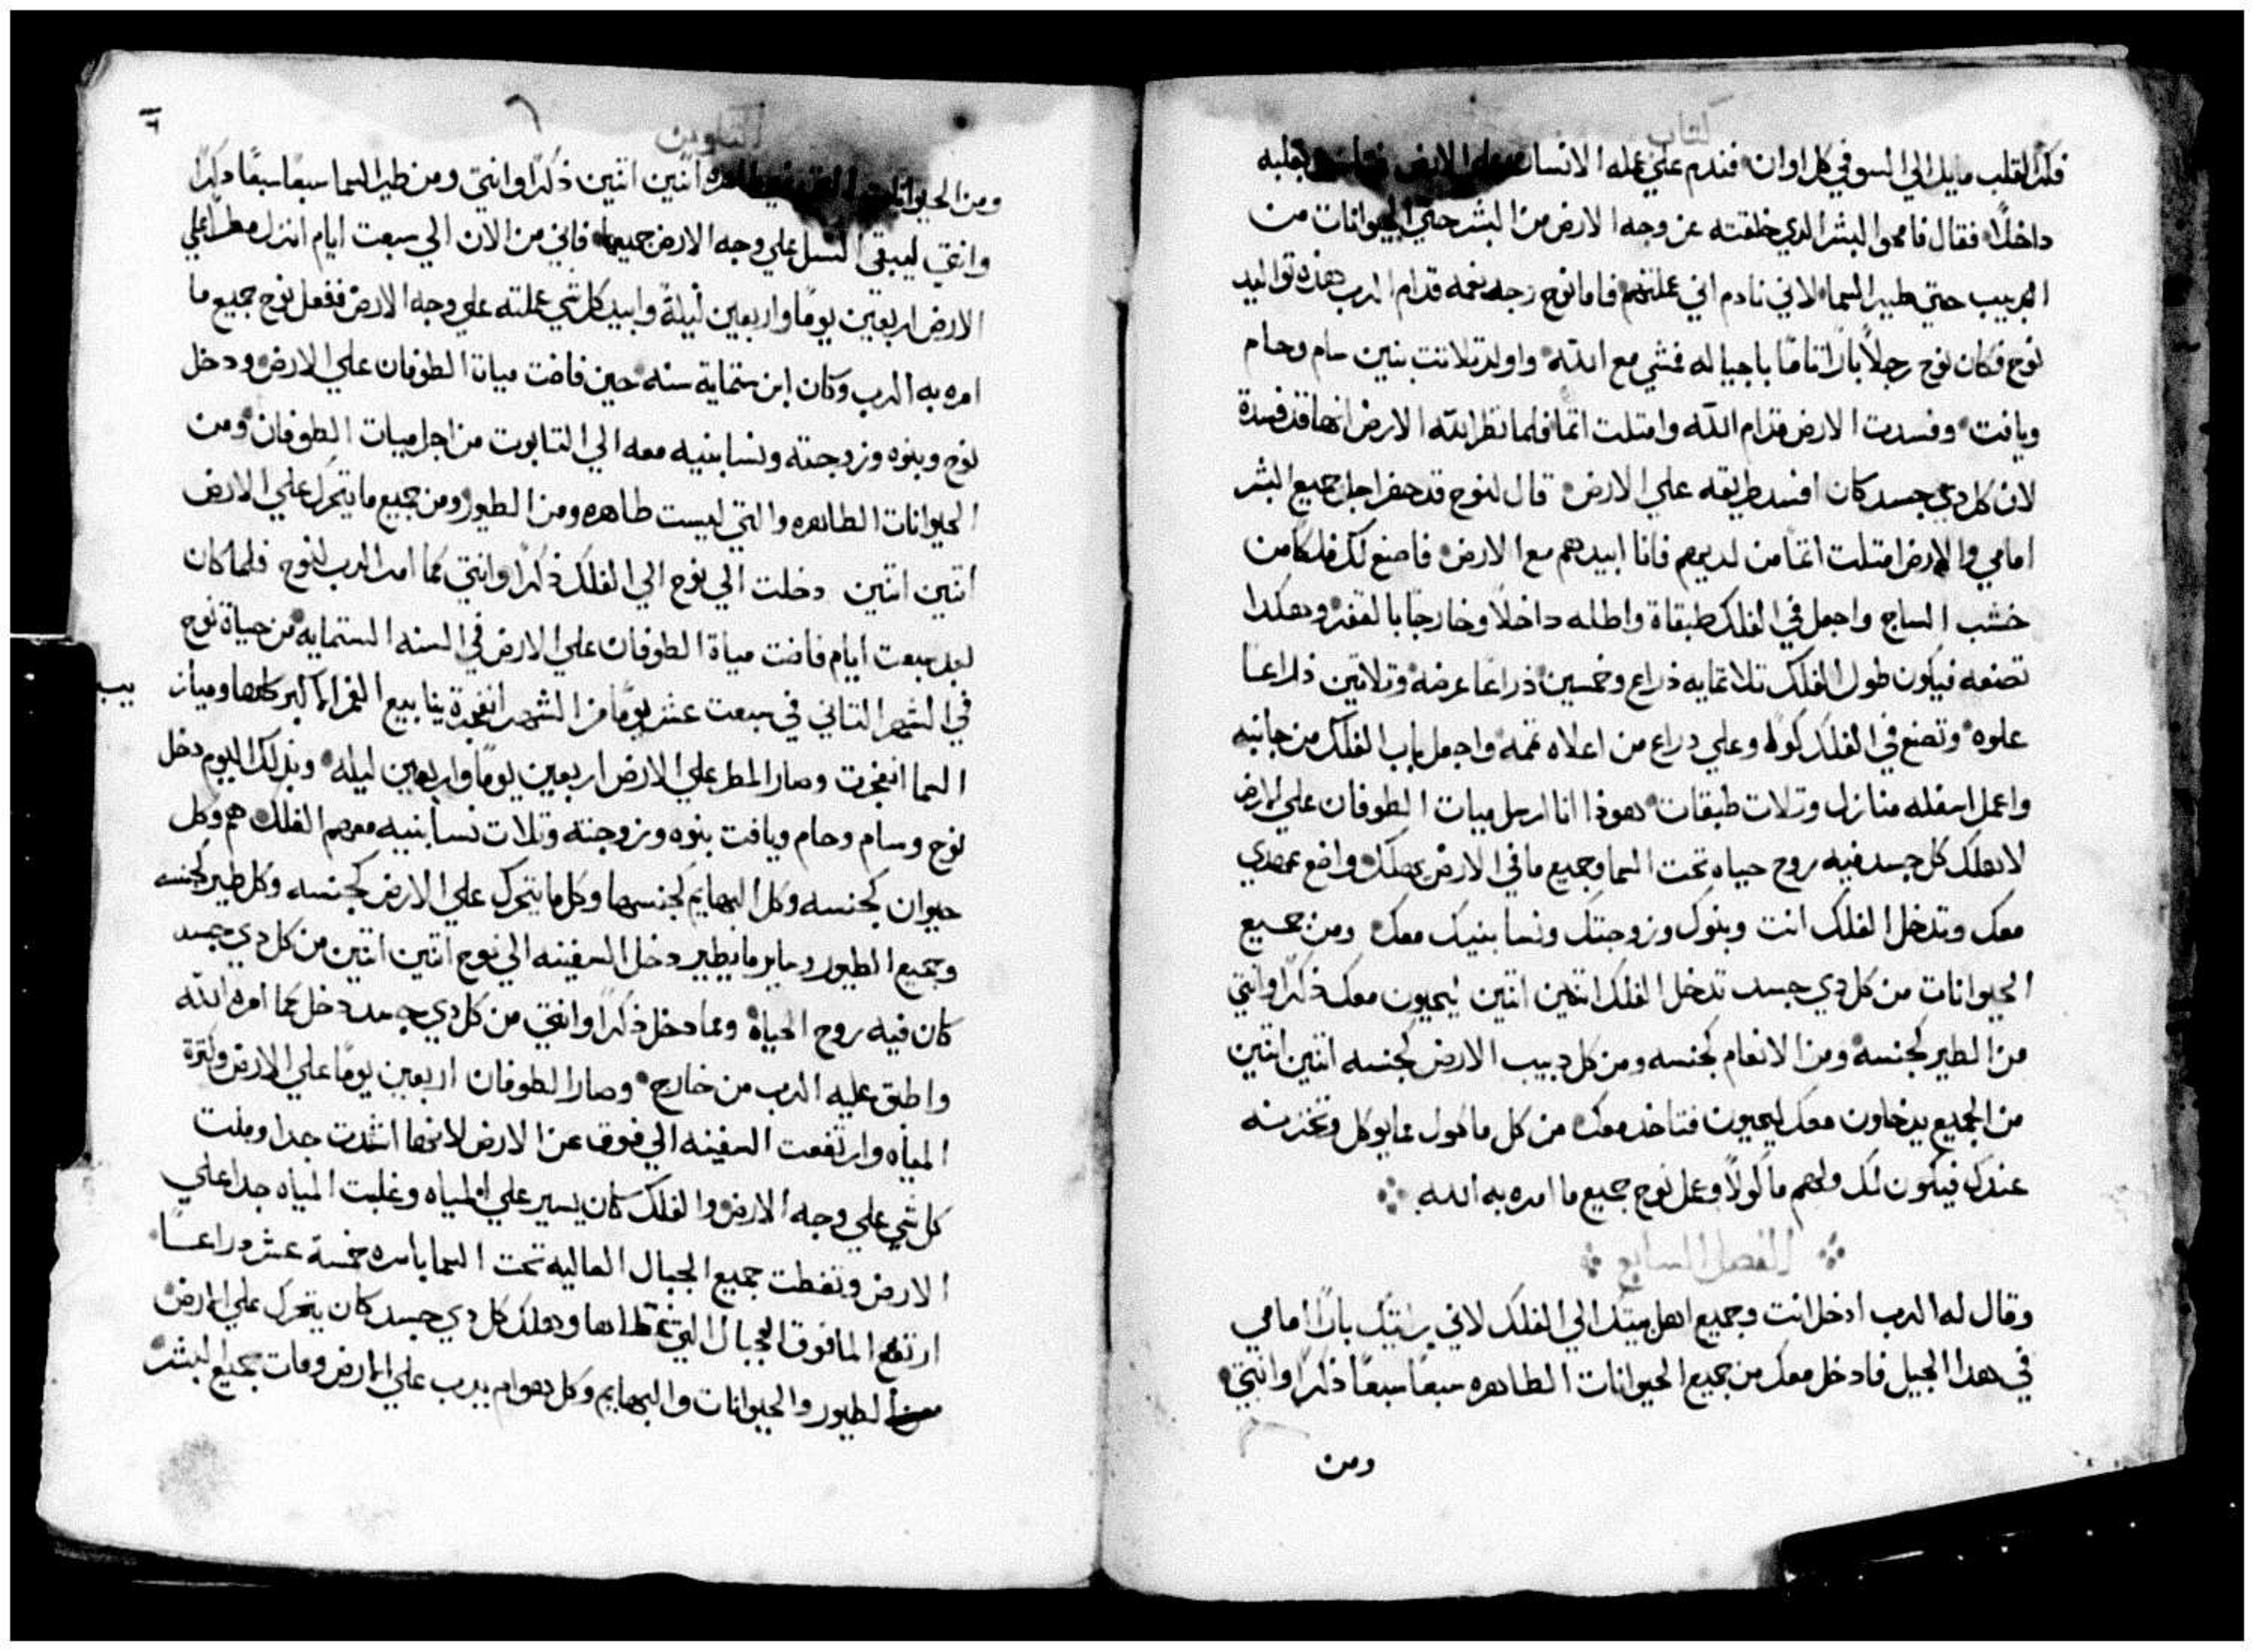 كتاب
فكر القلب مايل الي السو في كل اوان فندم علي عمله الانسان علي الارض بقلبه
داخلاً فقال فامحوا البشر الدي خلقته عن وجه الارض من البشر حتي الحيوانات من
الدبيب حتي طيير السما لاني نادم اني عملتهم فاما نوح وجد نعمه قدام الرب هذه تواليد
نوح فكان نوح رجلاً باراً تاماً باجياله فمشي مع الله واولد تلاتت بنين سام وحام
ويافت وفسدت الارض قدام الله وامتلت اتماً فلما نظر الله الارض انها قد فسدة
لان كل دي جسد كان افسد طريقه علي الارض قال لنوح قد حضر اجل جميع البشر
امامي والارض امتلت اتماً من لديهم فانا ابيدهم مع الارض فاصنع لك فلكاً من
خشب الساج واجعل في الفلك طبقاة واطله داخلاً وخارجاً بالقفر وهكدا
تصنعه فيكون طول الفلك تلاتمايه ذراع وخمسين ذراعاً عرضه وتلاتين ذراعاً
علوه وتصنع في الفلك كوله وعلي دراع من اعلاه تمه واجعل باب الفلك من جانبه
واعمل اسفله منازل وتلات طبقات هوذا انا ارسل ميات الطوفان علي الارض
لاهلك كل جسد فيه روح حياه تحت السما وجميع ما في الارض يهلك واضع عهدي
معك وتدخل الفلك انت وبنوك وزوجتك ونسا بنيك معك ومن جميع
الحيوانات من كل دي جسد تدخل الفلك اتنين اتنين ليحيون معك ذكراً وانتي
من الطير كجنسه ومن الانعام كجنسه ومن كل دبيب الارض كجنسه اتنين اتنين
من الجميع يدخلون معك ليحيون فتاخد معك من كل ماكول مما يوكل وتخزنه
عندك فيكون لك ولهم ماكولاً وعمل نوح جميع ما امره به الله
الفصل السابع
وقال له الرب ادخل انت وجميع اهل بيتك الي الفلك لاني رايتك باراً امامي
في هدا الجيل فادخل معك من جميع الحيوانات الطاهره سبعاً سبعاً ذكراً وانتي
ومن
التكوين
٦
ومن الحيوانات طاهره اتنين اتنين ذكراً وانتي ومن طير السما سبعاً سبعاً دكراً
وانتي ليبقي النسل علي وجه الارض جميعها فاني من الان الي سبعت ايام انزل مطراً علي
الارض اربعين يوماً واربعين ليلة وابيد كل شي عملته علي وجه الارض ففعل نوح جميع ما
امره به الرب وكان ابن ستمايه سنه حين فاضت مياة الطوفان علي الارض ودخل
نوح وبنوه وزوجته ونسا بنيه معه الي التابوت من اجل ميات الطوفان ومن
الحيوانات الطاهره والتي ليست طاهره ومن الطيور ومن جميع ما يتحرك علي الارض
اتنين اتنين دخلت الي نوح الي الفلك ذكراً وانتي كما امر الرب لنوح فلما كان
بعد سبعت ايام فاضت مياة الطوفان علي الارض في السنه الستمايه من حياة نوح
في الشهر التاني في سبعت عشر يوماً من الشهر انفجرة ينابيع الغمر الاكبر كلها وميازيب
السما انفجرت وصار المطر علي الارض اربعين يوماً واربعين ليله وبذلك اليوم دخل
نوح وسام وحام ويافت بنوه وزوجته وتلات نسا بنيه معهم الفلك هم وكل
حيوان كجنسه وكل البهايم كجنسها وكل ما يتحرك علي الارض كجنسه وكل طير كجنسه
وجميع الطيور وساير ما يطير دخل السفينه الي نوح اتنين اتنين من كل دي جسد
كان فيه روح الحياة ومما دخل ذكراً وانتي من كل دي جسد دخل كما امره الله
واطبق عليه الرب من خارج وصار الطوفان اربعين يوماً علي الارض وكترة
المياه وارتفعت السفينه الي فوق عن الارض لانها اشتدت جدا وملت
كل شي علي وجه الارض والفلك كان يسير علي المياه وغلبت المياه جدا علي
الارض وتغطت جميع الجبال العاليه تحت السما باسره خمسة عشر دراعاً
ارتفع الما فوق الجبال التي غطاها وهلك كل دي جسد كان يتحرك علي الارض
من الطيور والحيوانات والبهايم وكل هوام يدب علي الارض ومات جميع البشر